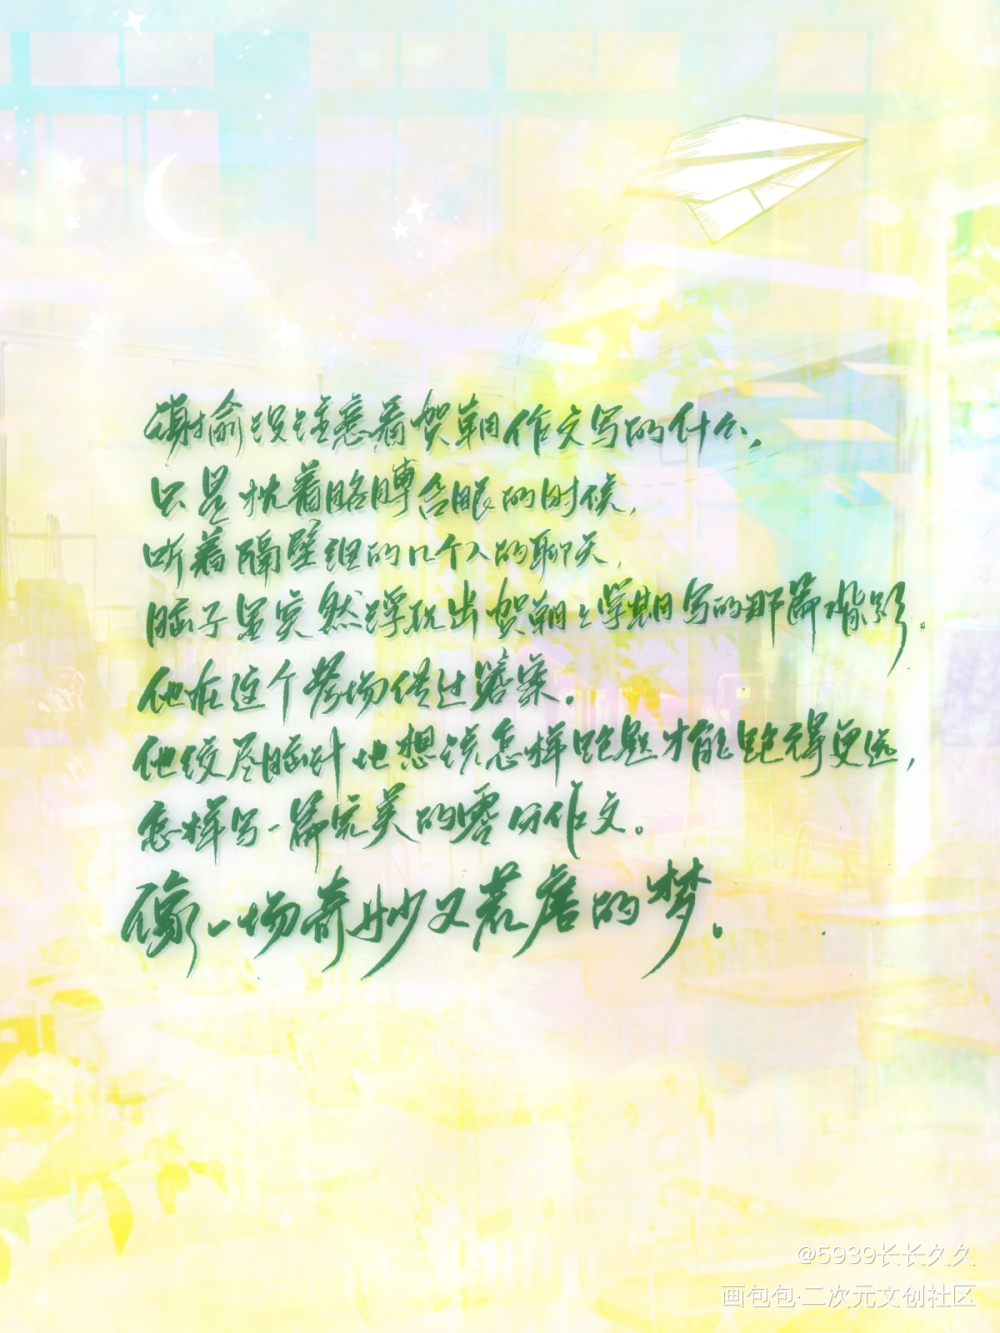 谢俞没注意看贺朝作文写的什么，
只是枕着胳膊合眼的时候，
听着隔壁组的几个人的聊天，
脑子里突然浮现出贺朝上学期写的那篇背影。
他在这个考场传过答案。
他绞尽脑汁地想该怎样跑题才能跑得更远，
怎样写一篇完美的零分作文。
像一场奇妙又荒唐的梦。
@5939长长久久
画包包·二次元文创社区